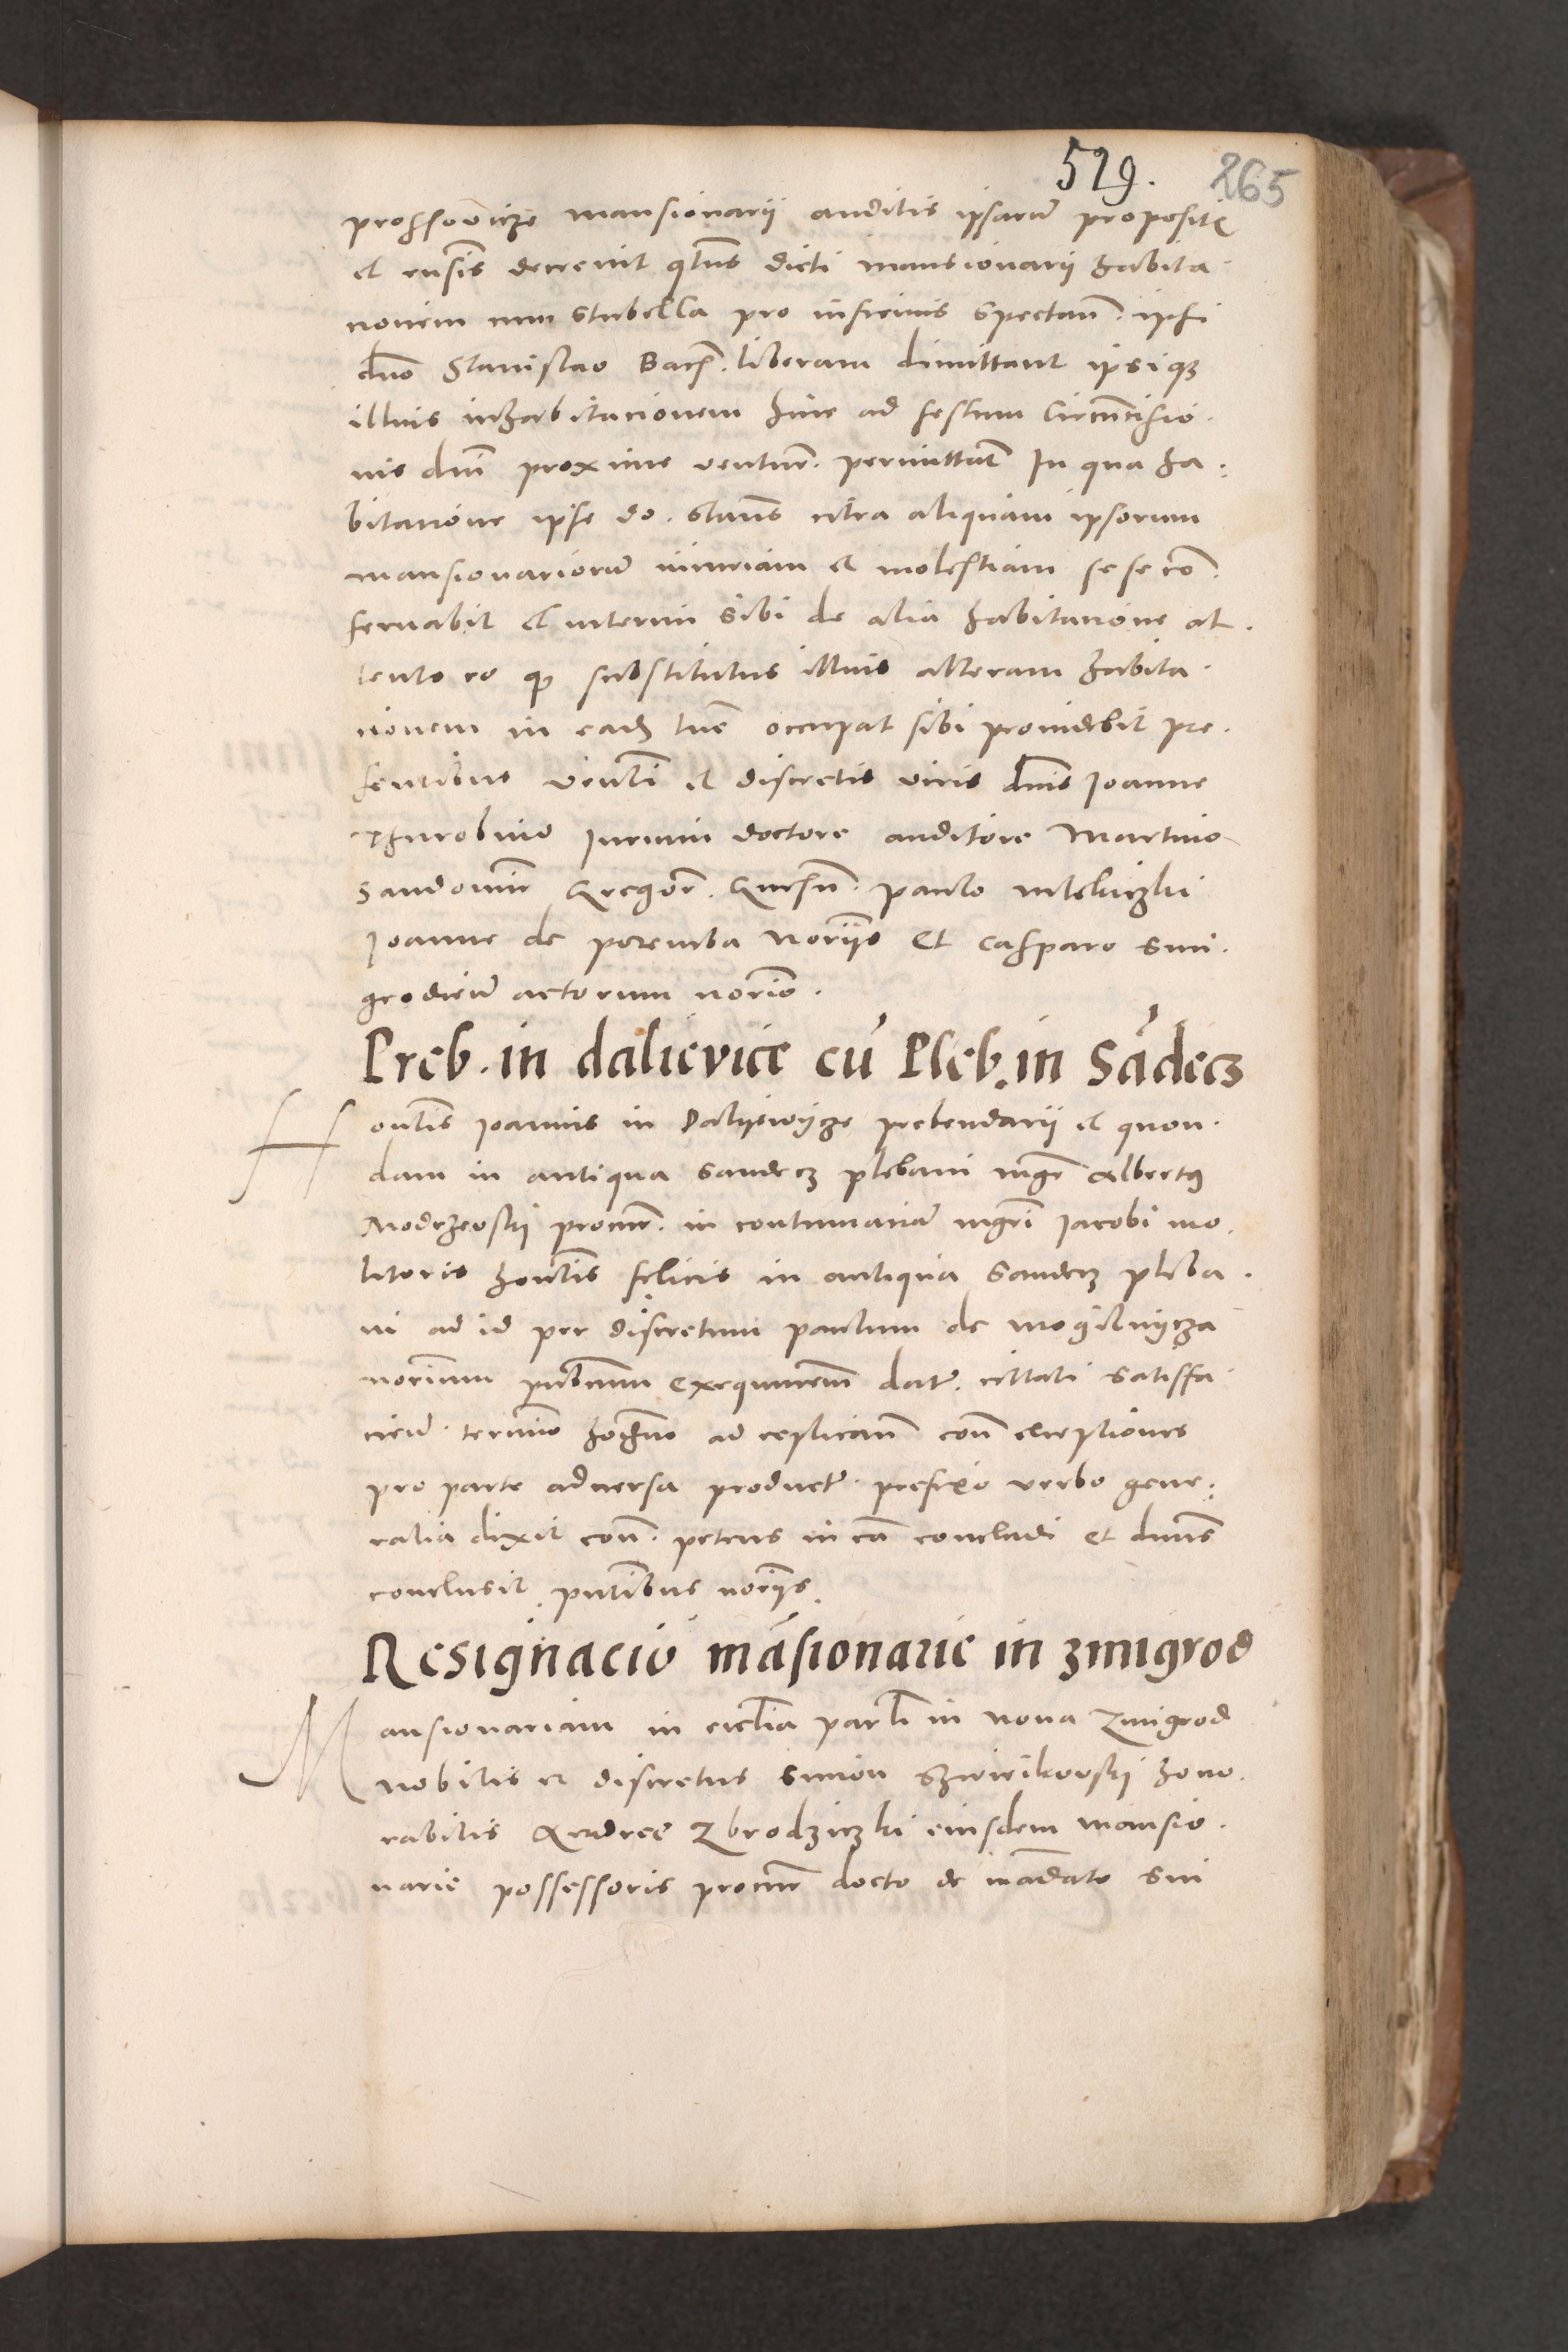 529. 265
proschovicze mansionarii auditis ipsarum proposit.
et respōsis decrevit qtus dicti mansionarii habita
cionem cum stubella pro infirmis spectan. ipsi
dno Stanislao Bach. liberam dimittant ipsiqȝ
illius inhabitacionem hinc ad festum Circūcisio
nis dni proxime ventur. permittāt In qua ha
bitacione ipse do. Stans citra aliquam ipsorum
mansionariorū iniuriam et molestiam se se cō
servabit Et interim sibi de alia habitacione at
tento eo qȝ substitutus illius alteram habita
cionem in eadȝ occupat sibi providebit pre
sentibus venli et discretis viris dnis Joanne
Thurobino Jurium doctore auditore Martino
Sandomir Gregor. Paulo
Joanne de poremba noriis Et Casparo Smi
grodicū actorum norio.
Preb. in dalievice cū Pleb. in Sādecȝ
Honlis Joannis in Dalyiowycze prebendarii et quon
dam in antiqua Sandecȝ plebani mgr Albertꝯ
Modrzeosky procur. in contumaciā mgri Jacobi mo
litoris honlis felicis in antiqua Sandecȝ pleba
ni ad id per discretum paulum de mogilnycza
norium publicum execucnem dat. cittati satisffa
ciend. termino hodierno ad replican con exceptiones
pro parte adversa product. prefixo verbo gene
ralia dixit con. petens in cā concludi et dnus
conclusit. pntibus noriis.
Resignacio māsionarie in zmigrod
Mansionariam in ecclia parli in nova Zmigrod
nobilis et discretus Simon Szwirikovskj hono
rabilis Andree Zbrodziczki eiusdem mansio
narie possessoris procur docto de mādato sui